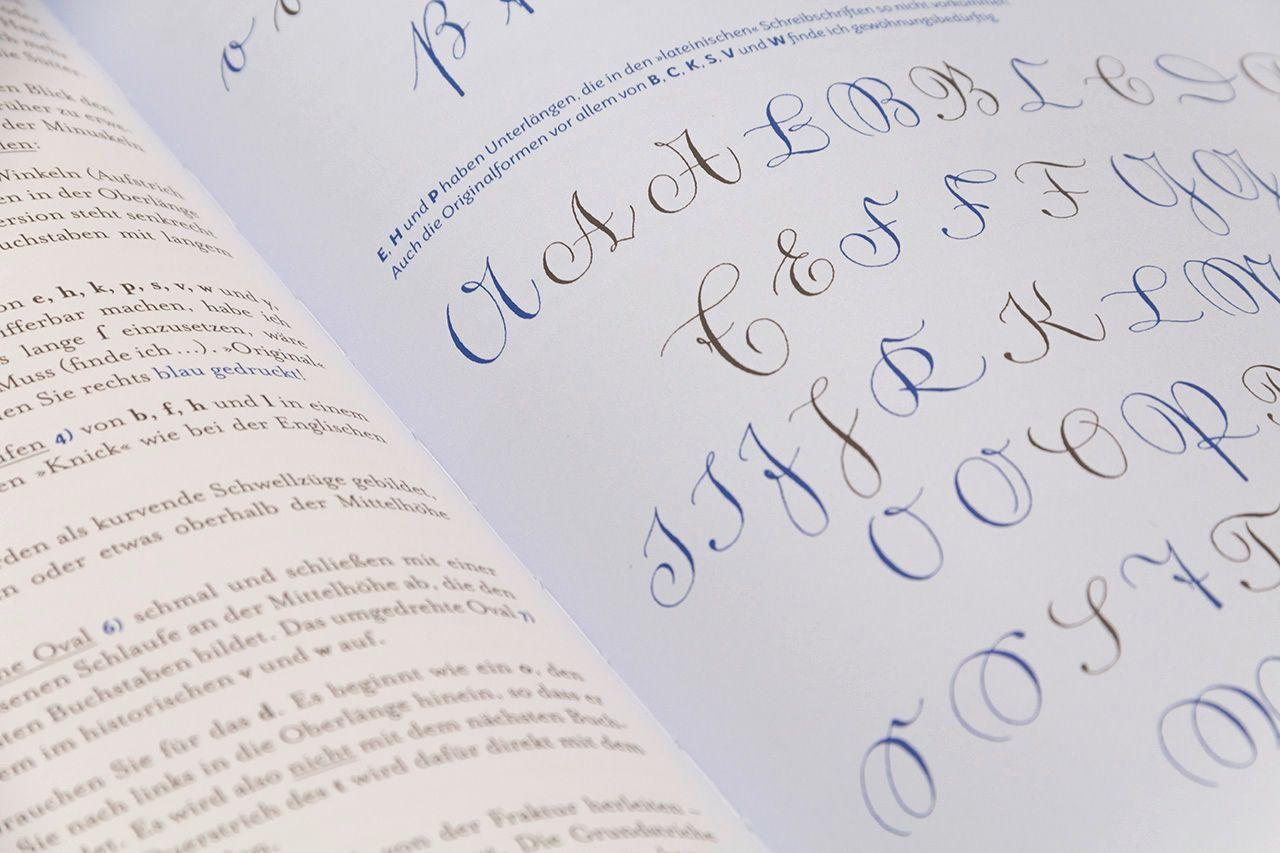 mehr
n Blick den
rüher zu erwe-
der Minuskeln
len:
Winkeln (Aufstrich
en in der Oberlänge
ersion steht senkrecht
uchstaben mit langem
on e, h, k, p, s, v, w und y,
ifferbar machen, habe ich
s lange f einzusetzen, wäre
Muss (finde ich …). »Original«
en Sie rechts blau gedruckt!
ifen 4) von b, f, h und l in einem
en »Knick« wie bei der Englischen
rden als kurvende Schwellzüge gebildet,
n oder etwas oberhalb der Mittelhöhe
ne Oval 6) schmal und schließen mit einer
senen Schlaufe an der Mittelhöhe ab, die den
ten Buchstaben bildet. Das umgedrehte Oval 7)
em im historischen v und w auf.
rauchen Sie für das d. Es beginnt wie ein o, den
Sie nach links in die Oberlänge hinein, so dass er
det. Es wird also nicht mit dem nächsten Buch-
Querstrich des t wird dafür direkt mit dem
von der Fraktur herleiten –
Die Grundstriche
v
B
E, H und P haben Unterlängen, die in den »lateinischen« Schreibschriften so nicht vorkommen.
Auch die Originalformen vor allem von B, C, K, S, V und W finde ich gewöhnungsbedürftig.
A A A B B B C C D
E E F F F G G
I I J J K K L M
O O O P
S T T